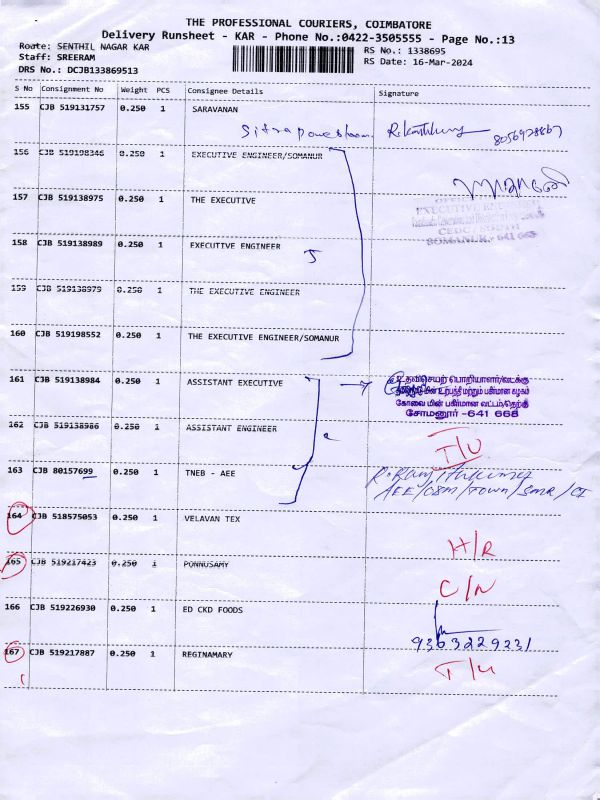 THE PROFESSIONAL COURIERS, COIMBATORE
Delivery Runsheet - KAR - Phone No.:0422-3505555 - Page No.:13
Route: SENTHIL NAGAR KAR
RS No.: 1338695
Staff: SREERAM
RS Date: 16-Mar-2024
DRS No.: DCJB133869513
S No Consignment No Weight PCS Consignee Details Signature
155 CJB 519131757 0.250 1 SARAVANAN
8056928867
156 CJB 519198346 0.250 1 EXECUTIVE ENGINEER/SOMANUR
157 CJB 519138975 0.250 1 THE EXECUTIVE
EXECUTIVE
CEDC / SOUTH
SOMANUR - 641 668
158 CJB 519138989 0.250 1 EXECUTIVE ENGINEER 5
159 CJB 519138979 0.250 1 THE EXECUTIVE ENGINEER
160 CJB 519198552 0.250 1 THE EXECUTIVE ENGINEER/SOMANUR
161 CJB 519138984 0.250 1 ASSISTANT EXECUTIVE
உதவிசெயற் பொறியாளர்/வடக்கு
மின் உற்பத்தி மற்றும் பகிர்மான கழகம்
கோவை மின் பகிர்மான வட்டம்/தெற்கு
சோமனூர் -641 668
162 CJB 519138986 0.250 1 ASSISTANT ENGINEER
T/U
163 CJB 80157699 0.250 1 TNEB - AEE
AEE/O&M/TOWN/SMR/
164 CJB 518575053 0.250 1 VELAVAN TEX
H/R
165 CJB 519217423 0.250 1 PONNUSAMY
C/N
166 CJB 519226930 0.250 1 ED CKD FOODS
9363229231
167 CJB 519217887 0.250 1 REGINAMARY
T/U